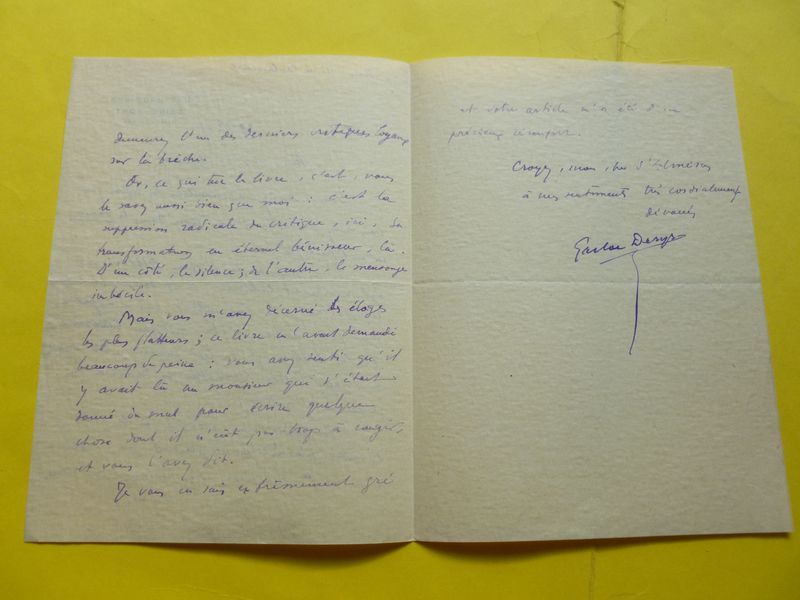 demeurez l'un des derniers critiques loyaux
sur la brèche.
Or, ce qui tue le livre, c'est, vous
le savez aussi bien que moi : c'est la
suppression radicale du critique, ici, sa
transformation en éternel bénisseur, là.
D'un côté, le silence ; de l'autre, le mensonge
imbécile.
Mais vous m'avez décerné les éloges
les plus flatteurs ; ce livre m'avait demandé
beaucoup de peine : vous avez senti qu'il
y avait là un monsieur qui s'était
donné du mal pour écrire quelque
chose dont il n'eût pas trop à rougir,
et vous l'avez dit.
Je vous en sais extrêmement gré
et votre article m'a été d'un
précieux réconfort.
Croyez, mon cher
à mes sentiments très cordialement
dévoués
Gaston Derys